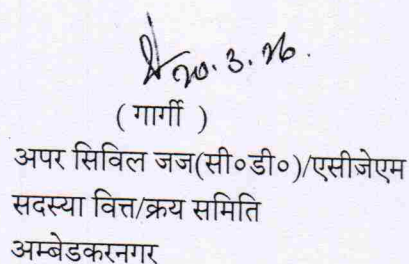 20.3.26.
( गार्गी )
अपर सिविल जज(सी०डी०)/एसीजेएम
सदस्या वित्त/क्रय समिति
अम्बेडकरनगर